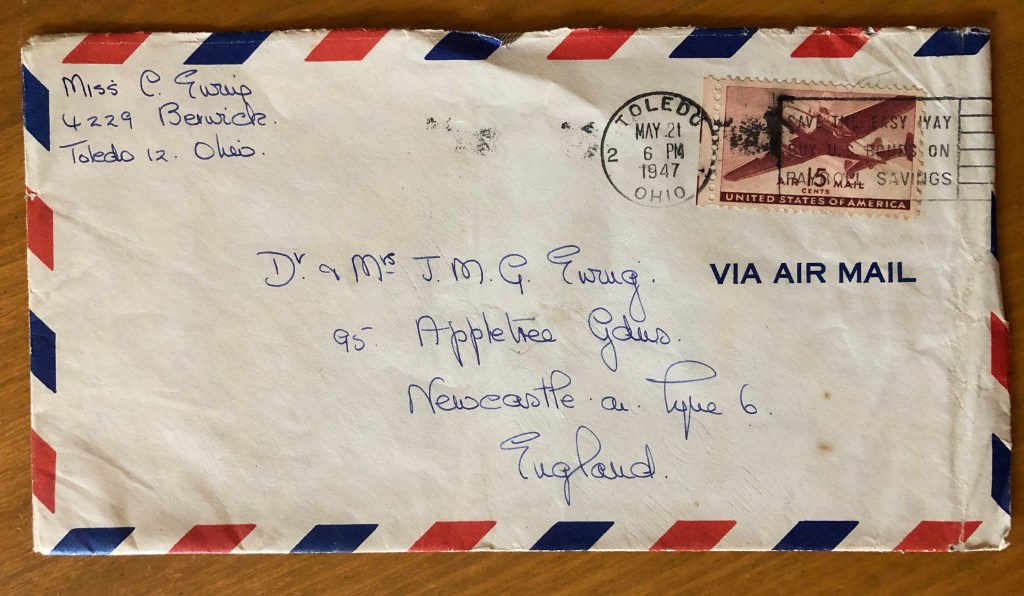 Miss C. Ewing
4229 Berwick.
Toledo 12. Ohio.
TOLEDO
MAY 21
2 6 PM
1947
OHIO
SAVE THE EASY WAY
BUY U.S. BONDS ON
PAYROLL SAVINGS
AIR 15 MAIL
CENTS
UNITED STATES OF AMERICA
VIA AIR MAIL
Dr & Mrs J. M. G. Ewing.
95 Appletree Gdns.
Newcastle. on. Tyne 6.
England.